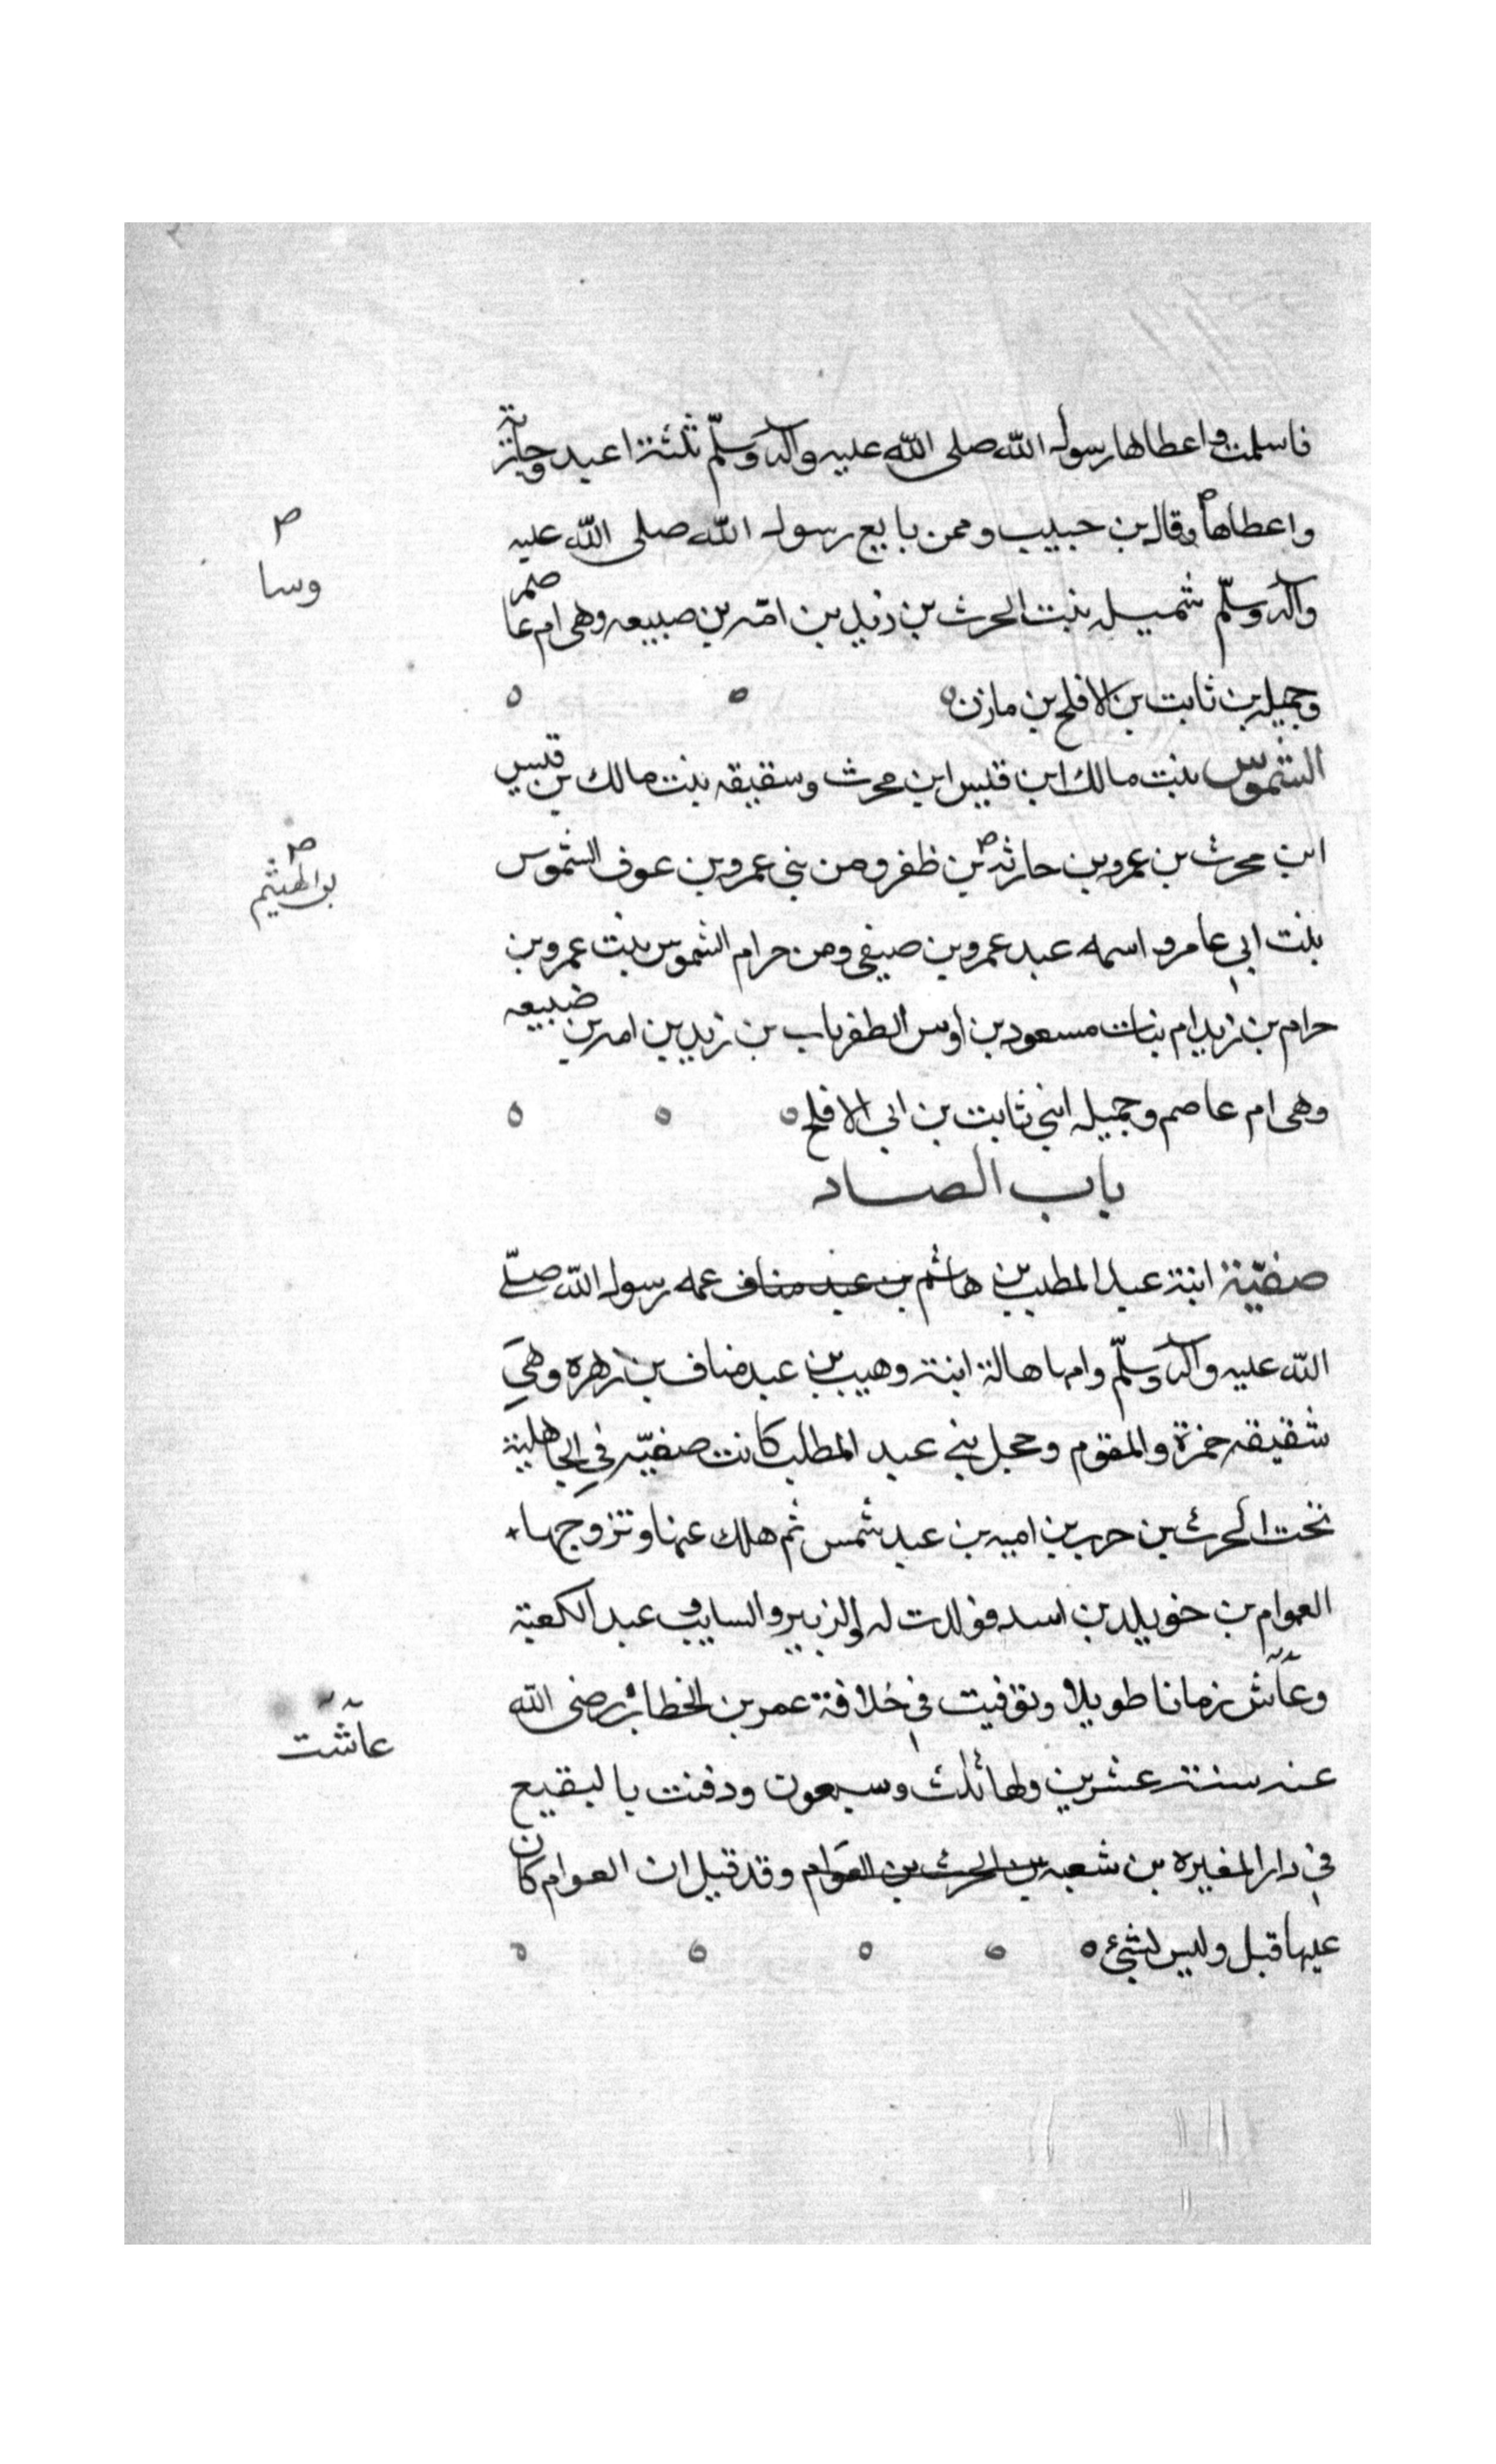 فاسلمت واعطاها رسول الله صلى الله عليه وآله وسلم ثلثة اعبد وجارية
واعطاها وقال بن حبيب وممن بايع رسول الله صلى الله عليه
ص
وسا
وآله وسلم شميله بنت الحرث بن زيد بن امه بن صبيعه وهى ام عاصم
وجميله بن ثابت بن الافلح بن مازن
الشموس بنت مالك ابن قيس ابن محرث وسقيقه بنت مالك بن قيس
ابن محرث بن عمرو بن حارثه بن ظفر ومن بنى عمرو بن عوف الشموس
ص
بن الهيثم
بنت ابي عامر واسمه عبد عمرو بن صيفى ومن حرام الشموس بنت عمرو بن
حرام بن زيد ام بنات مسعود بن اوس الظفر باب بن زيد بن امه بن ضبيعه
وهى ام عاصم وجميله ابنى ثابت بن ابى الافلح
باب الصاد
صفيّة ابنة عبد المطلب بن هاشم بن عبد مناف عمه رسول الله صلّى
الله عليه وآله وسلّم وامها هالة ابنة وهيب بن عبد مناف بن زهرة وهى
شقيقه حمزة والمقوم وحجل بنى عبد المطلب كانت صفيّه في الجاهلية
تحت الحرث بن حرب بن اميه بن عبد شمس ثم هلك عنها وتزوجها
العوام بن خويلد بن اسد فولدت له الزبير والسايب وعبد الكعبة
وعاش زمانا طويلا وتوفيت في خلافة عمر بن الخطاب رضى الله
عاشت
عنه سنة عشرين ولها ثلث وسبعون ودفنت بالبقيع
في دار المغيره بن شعبه بن الحرث بن العوام وقد قيل ان العوام كان
عيها قبل وليس بشئ